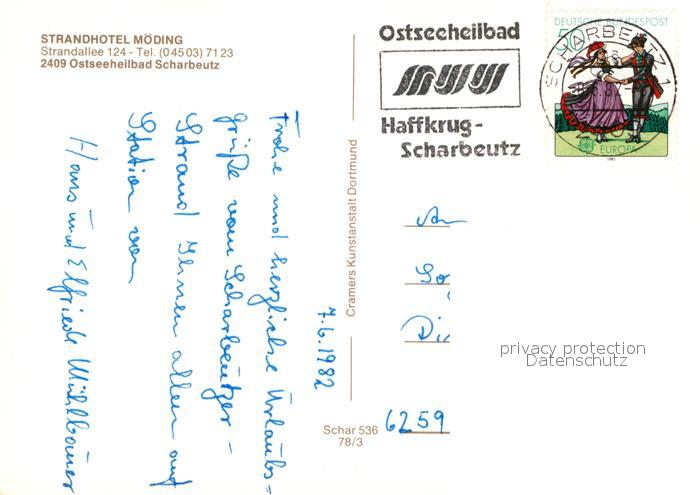 STRANDHOTEL MÖDING
Strandallee 124 - Tel. (0 45 03) 71 23
2409 Ostseeheilbad Scharbeutz
Ostseeheilbad
Haffkrug-
Scharbeutz
DEUTSCHE BUNDESPOST
50
SCHARBEUTZ 1
EUROPA
1981
7.6.1982
Frohe und herzliche Urlaubs=
grüße vom Scharbeutzer-
Strand Ihnen allen auf
Station von
Hans und Elfriede Mühlbauer
Cramers Kunstanstalt Dortmund
Schar 536
78/3
An
So
Di
6259
privacy protection
Datenschutz